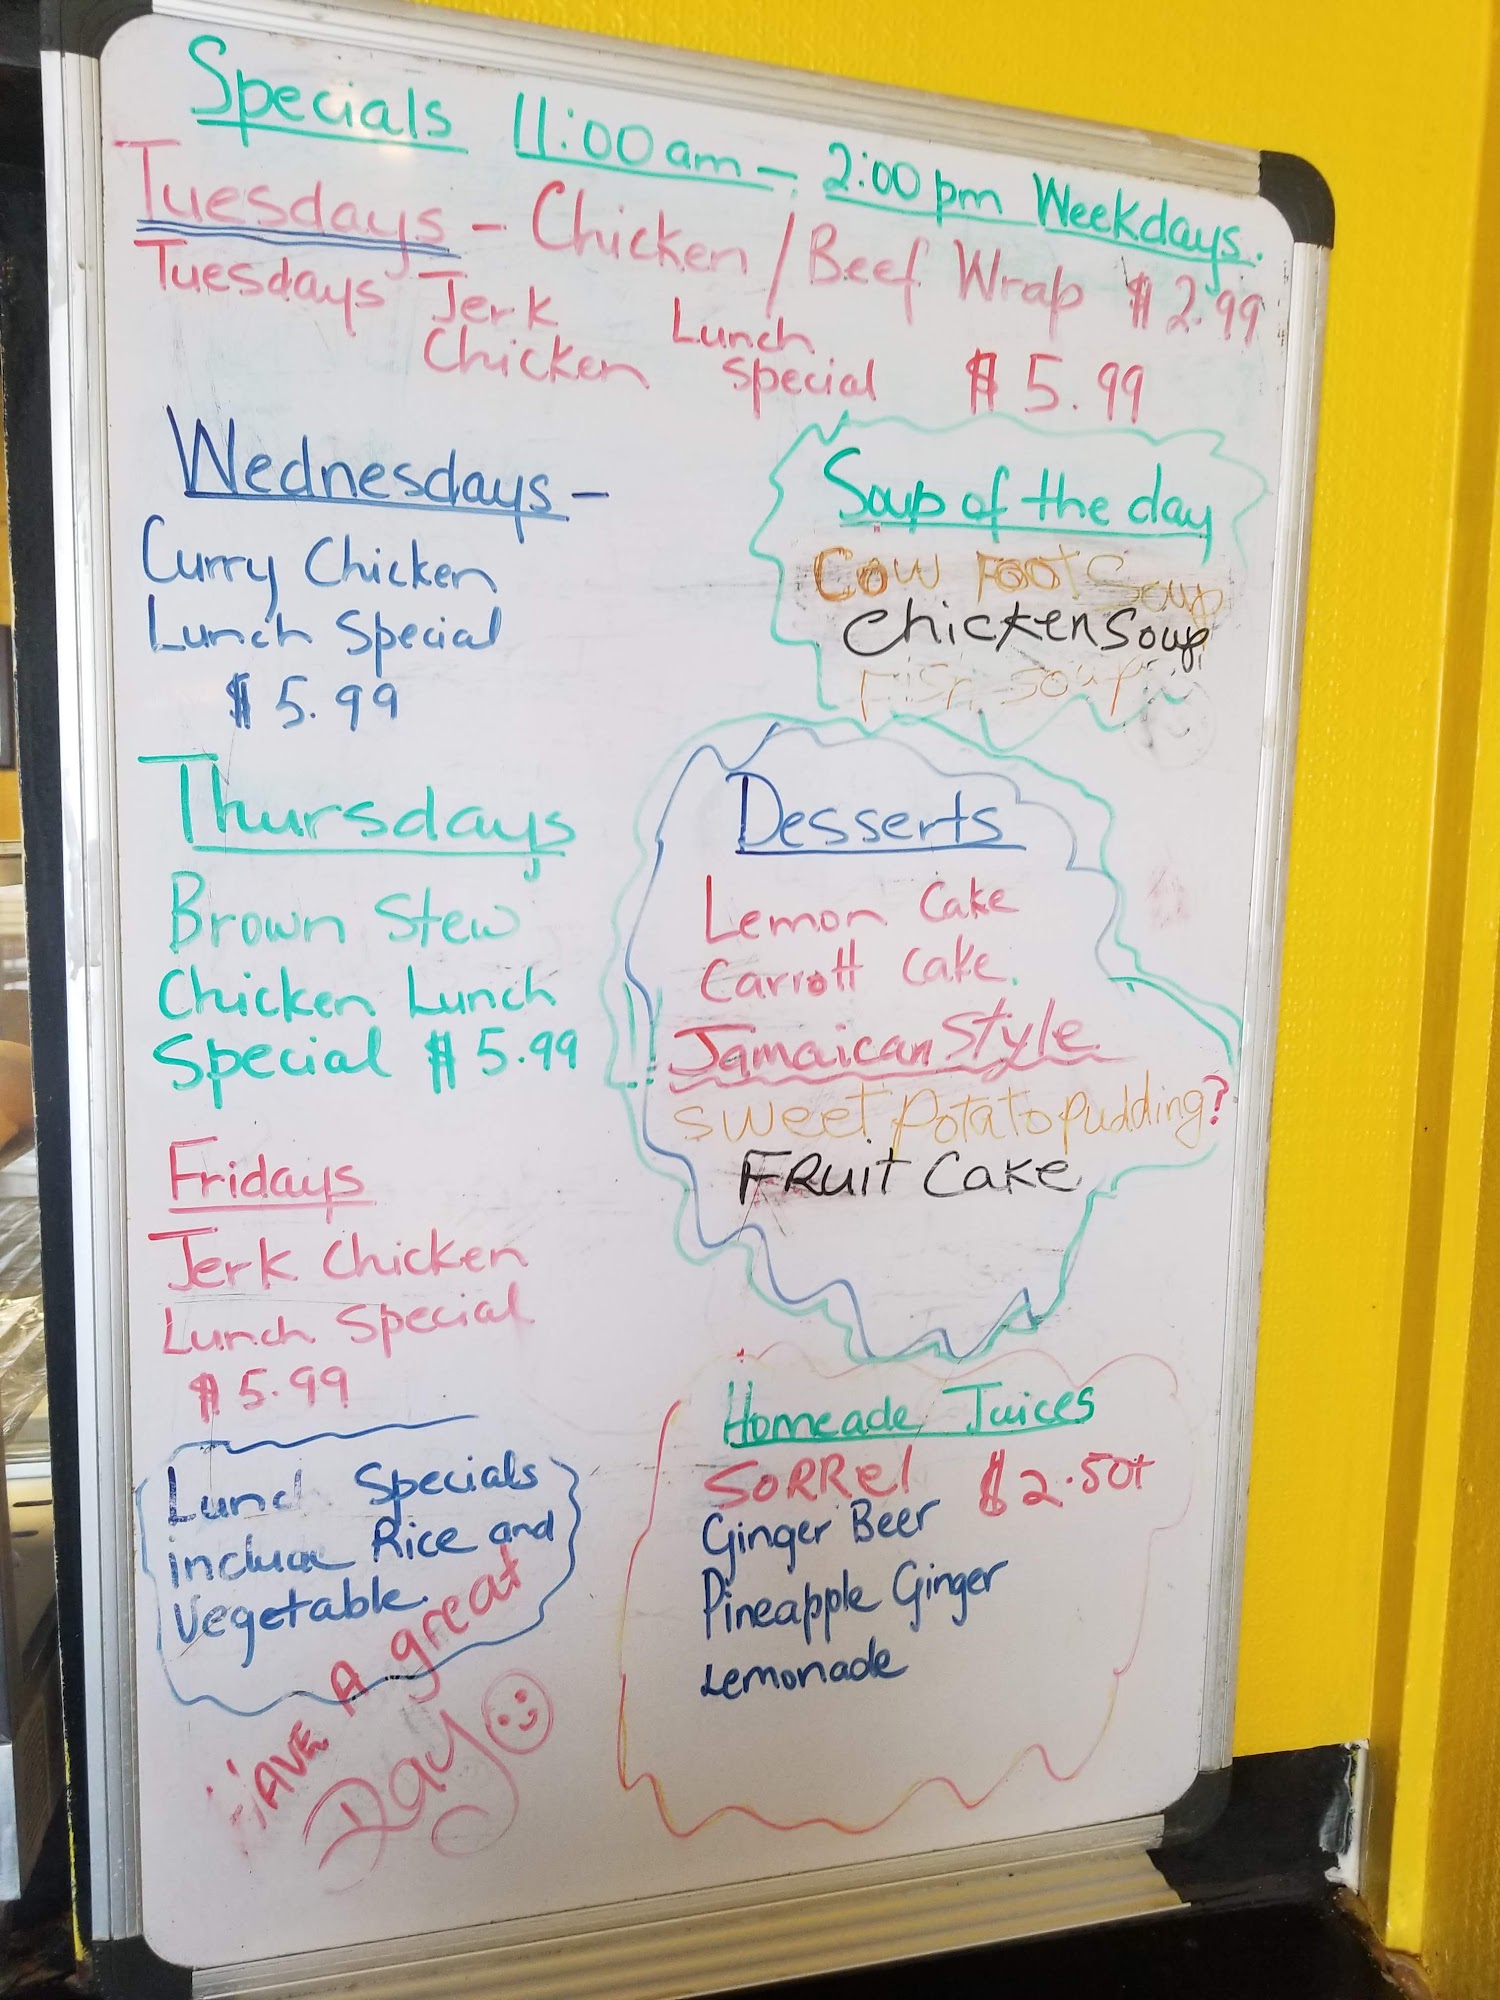 Specials 11:00am - 2:00pm Weekdays.
Tuesdays - Chicken / Beef Wrap $2.99
Tuesdays Jerk Chicken Lunch Special $5.99
Wednesdays -
Curry Chicken
Lunch Special
$5.99
Soup of the day
Cow Foot Soup
Chicken Soup
Fish Soup
Thursdays
Brown Stew
Chicken Lunch
Special $5.99
Desserts
Lemon Cake
Carrott Cake.
Jamaican Style
Sweet Potato pudding?
FRUIT CAKE
Fridays
Jerk Chicken
Lunch Special
$5.99
Lunch Specials
include Rice and
Vegetable.
HAVE A great
Day
Homeade Juices
SORRel $2.50+
Ginger Beer
Pineapple Ginger
Lemonade